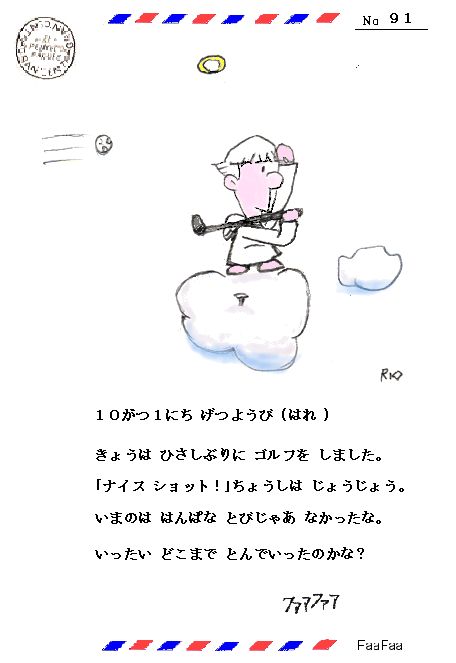 No 91
RIO
10がつ1にち げつようび (はれ )
きょうは ひさしぶりに ゴルフを しました。
「ナイス ショット!」ちょうしは じょうじょう。
いまのは はんぱな とびじゃあ なかったな。
いったい どこまで とんでいったのかな?
ファアファア
FaaFaa